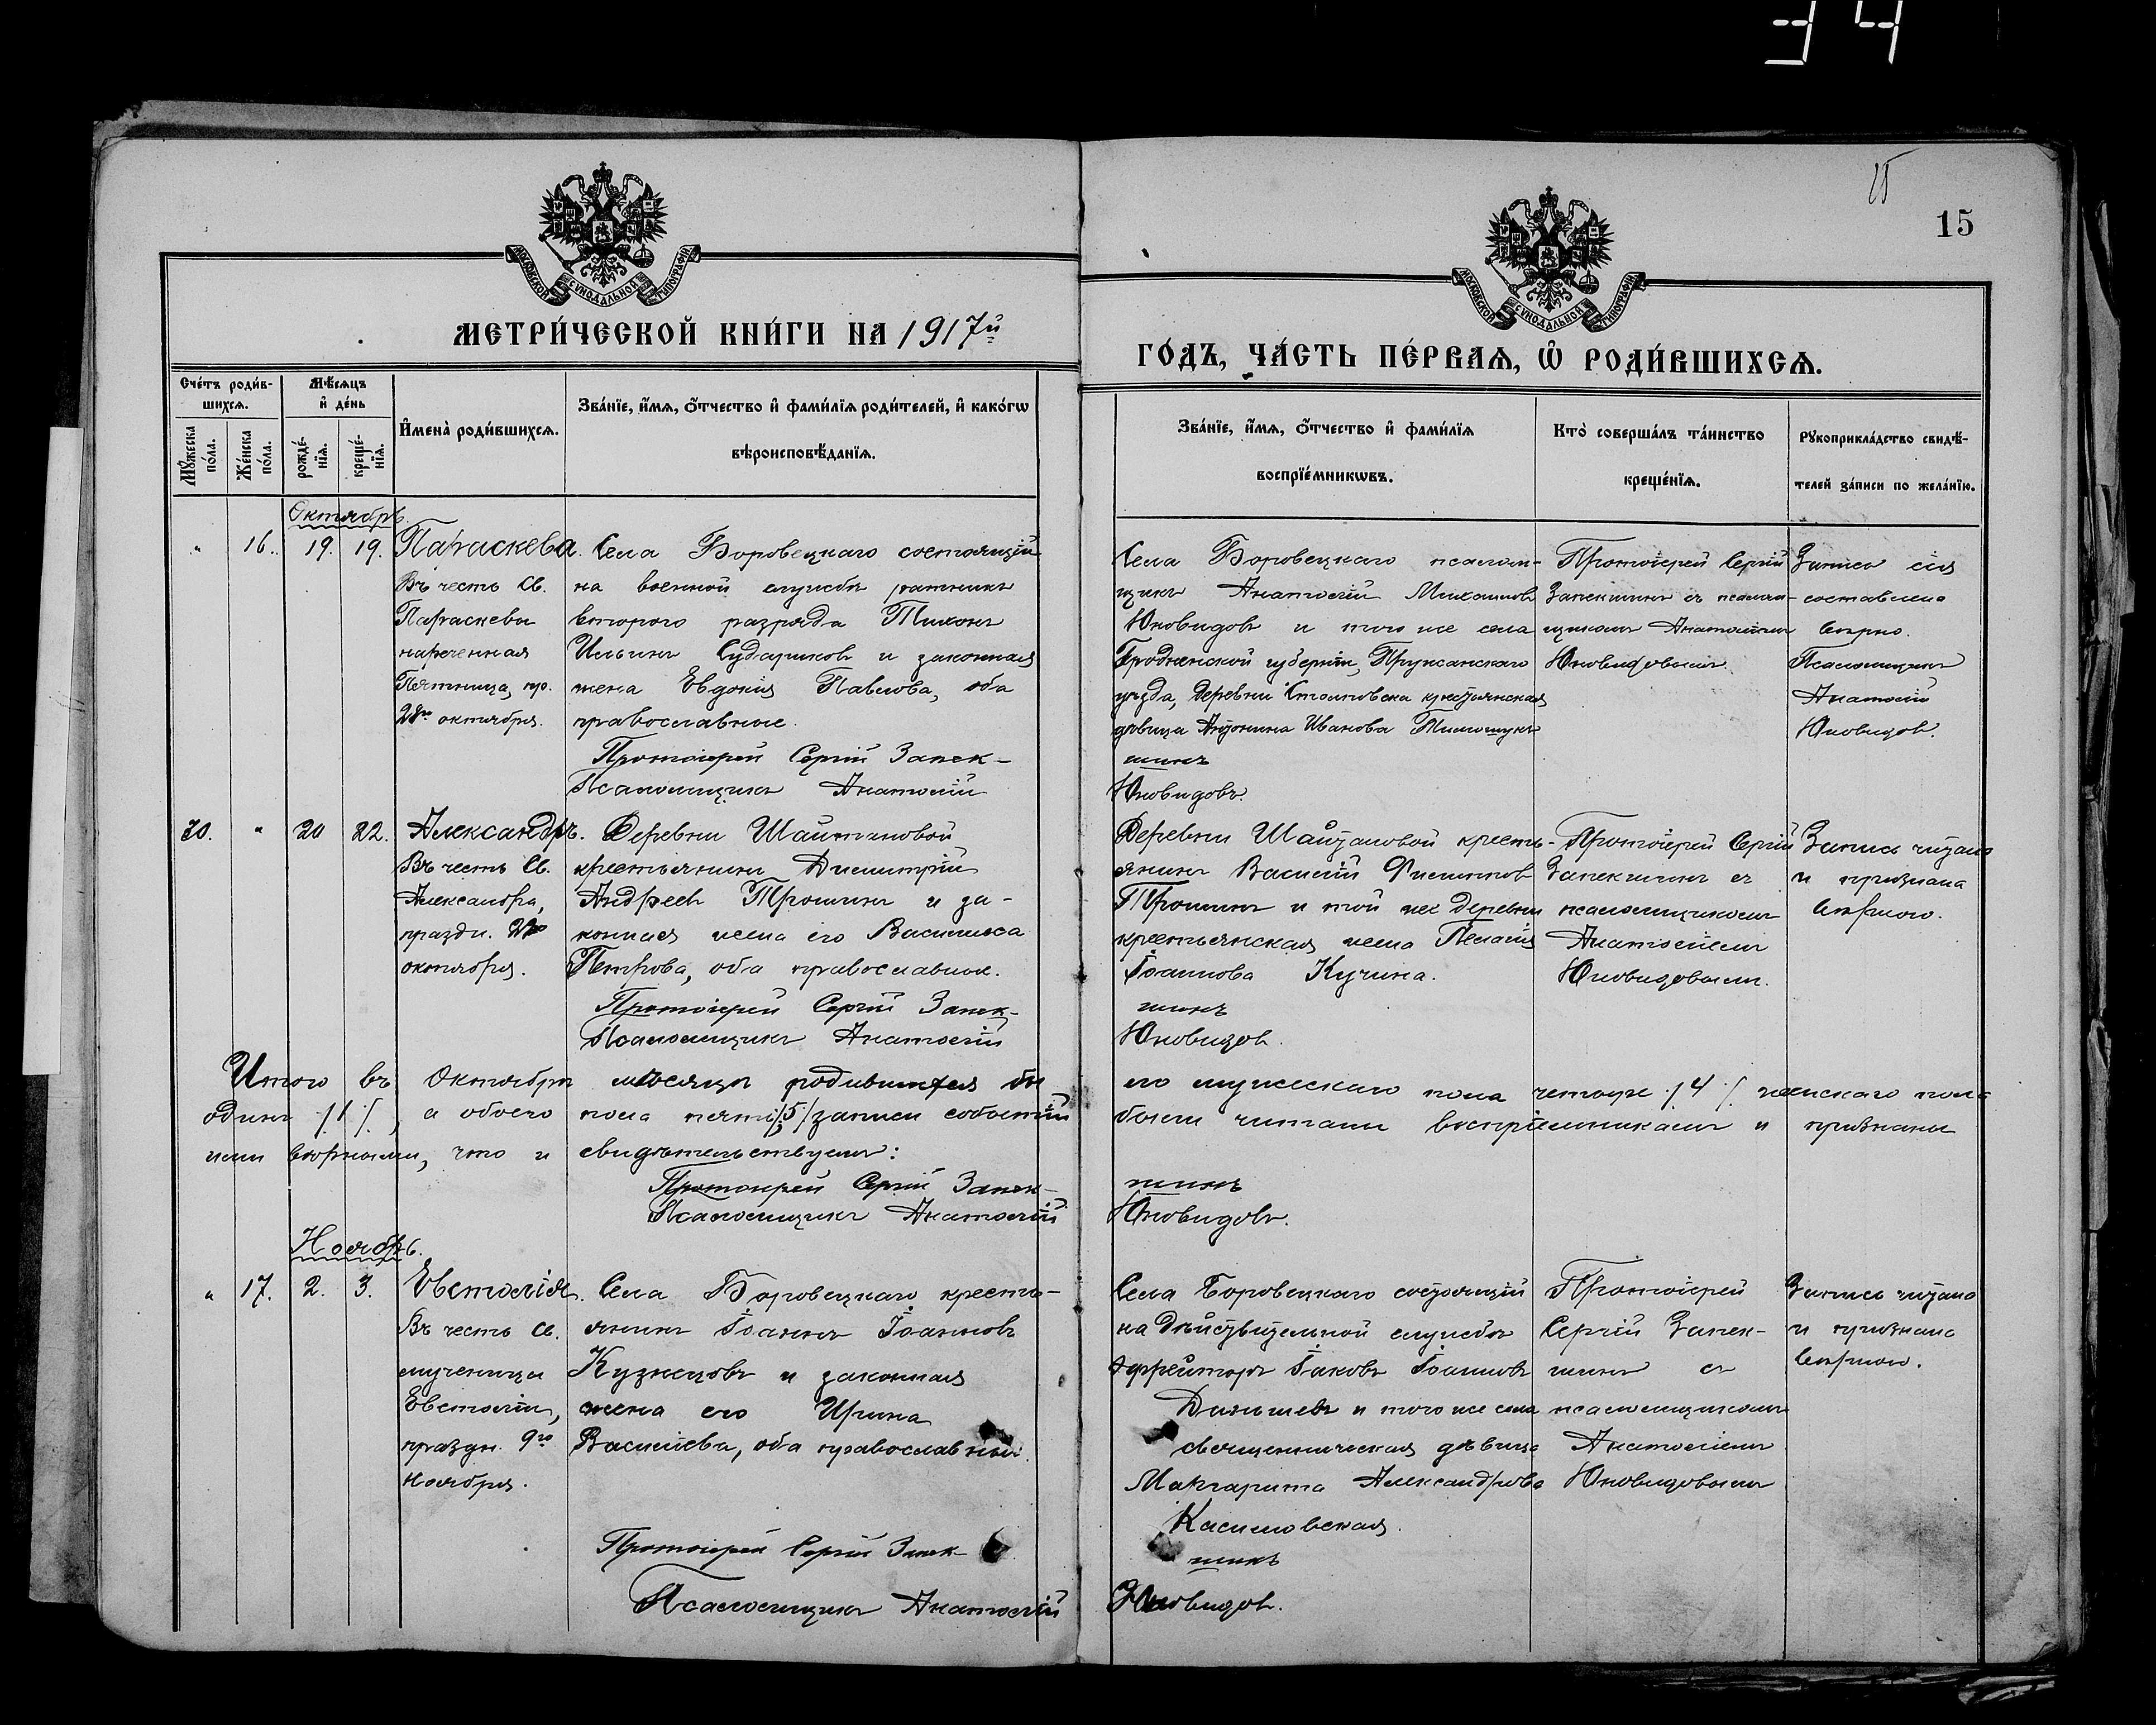 34
15
15
МОСКОВСКОЙ СѴНОДАЛЬНОЙ ТИПОГРАФІИ
МОСКОВСКОЙ СѴНОДАЛЬНОЙ ТИПОГРАФІИ
МЕТРИ́ЧЕСКОЙ КНИ́ГИ НА 1917й
ГО́ДЪ, ЧА́СТЬ ПЕ́РВАѦ, Ѽ РОДИ́ВШИХСѦ.
Сче́тъ роди́в-
шихсѧ.
Мѣ́сѧцъ
и҆ де́нь
И҆мена̀ роди́вшихсѧ.
Зва́нїе, и҆́мѧ, ѻ҆́тчество и҆ фами́лїѧ роди́телей, и҆ како́гѡ
вѣроисповѣ́данїѧ.
Мꙋ́жеска
по́ла.
Же́нска
по́ла.
рожде́-
нїѧ.
креще́-
нїѧ.
Зва́нїе, и҆́мѧ, ѻ҆́тчество и҆ фами́лїѧ
воспрїе́мникѡвъ.
Кто̀ соверша́лъ та́инство
креще́нїѧ.
Рꙋкоприкла́дство свидѣ́-
телей за́писи по жела́нїю.
Октябрь.
" 16. 19. 19. Параскева.
Въ честь св.
Параскевы
нареченная
Пятница, пр.
28го октября.
Села Боровецкаго состоящій
на военной службѣ ратникъ
второго разряда Тихонъ
Ильинъ Судариковъ и законная
жена Евдокія Павлова, оба
православные.
Протоіерей Сергій Запек-
Псаломщикъ Анатолій
Села Боровецкаго псалом-
щикъ Анатолій Михаиловъ
Юновидовъ и того же села
Гродненской губерніи, Пружанскаго
уѣзда, деревни крестьянская
дѣвица Антонина Иванова Тимощукъ
шинъ
Юновидовъ.
Протоіерей Сергій
Запекшинъ съ псалом-
щикомъ Анатоліемъ
Юновидовымъ.
Запись сія
составлена
вѣрно.
Псаломщикъ
Анатолій
Юновидовъ.
30. " 20 22. Александръ.
Въ честь св.
Александра,
праздн. 22го
октября.
Деревни Шайтановой
крестьянинъ Димитрій
Андреевъ Трошинъ и за-
конная жена его Василиса
Петрова, оба православные.
Протоіерей Сергій Запек-
Псаломщикъ Анатолій
Деревни Шайтановой кресть-
янинъ Василій Филиппов
Трошинъ и той же деревни
крестьянская жена Пелагія
Іоаннова Кучина.
шинъ
Юновидов.
Протоіерей Сергій
Запекшинъ съ
псаломщикомъ
Анатоліемъ
Юновидовымъ.
Запись читана
и признана
вѣрною.
Итого въ Октябрѣ мѣсяцѣ родившихся бы ло мужескаго пола четыре /4/ женскаго пола
одинъ /1/, а обоего пола пять /5/ записи событій были читаны воспріемникамъ и признаны
ими вѣрными, что и свидѣтельствуемъ:
Протоіерей Сергій Запек-
шинъ
Псаломщикъ Анатолій
Юновидовъ.
Ноябрь.
" 17. 2. 3. Евстолія.
Въ честь св.
мученицы
Евстоліи,
праздн. 9го
ноября.
Села Боровецкаго кресть-
янинъ Іоаннъ Іоанновъ
Кузнецовъ и законная
жена его Ирина
Василіева, оба православные.
Протоіерей Сергій Запек-
Псаломщикъ Анатолій
Села Боровецкаго состоящій
на дѣйствительной службѣ
ефрейторъ Іаковъ Іоанновъ
и того же села
священническая дѣвица
Маргарита Александрова
Касимовская.
шинъ
Юновидов.
Протоіерей
Сергій Запек-
шинъ съ
псаломщикомъ
Анатоліемъ
Юновидовымъ
Запись читана
и признана
вѣрною.